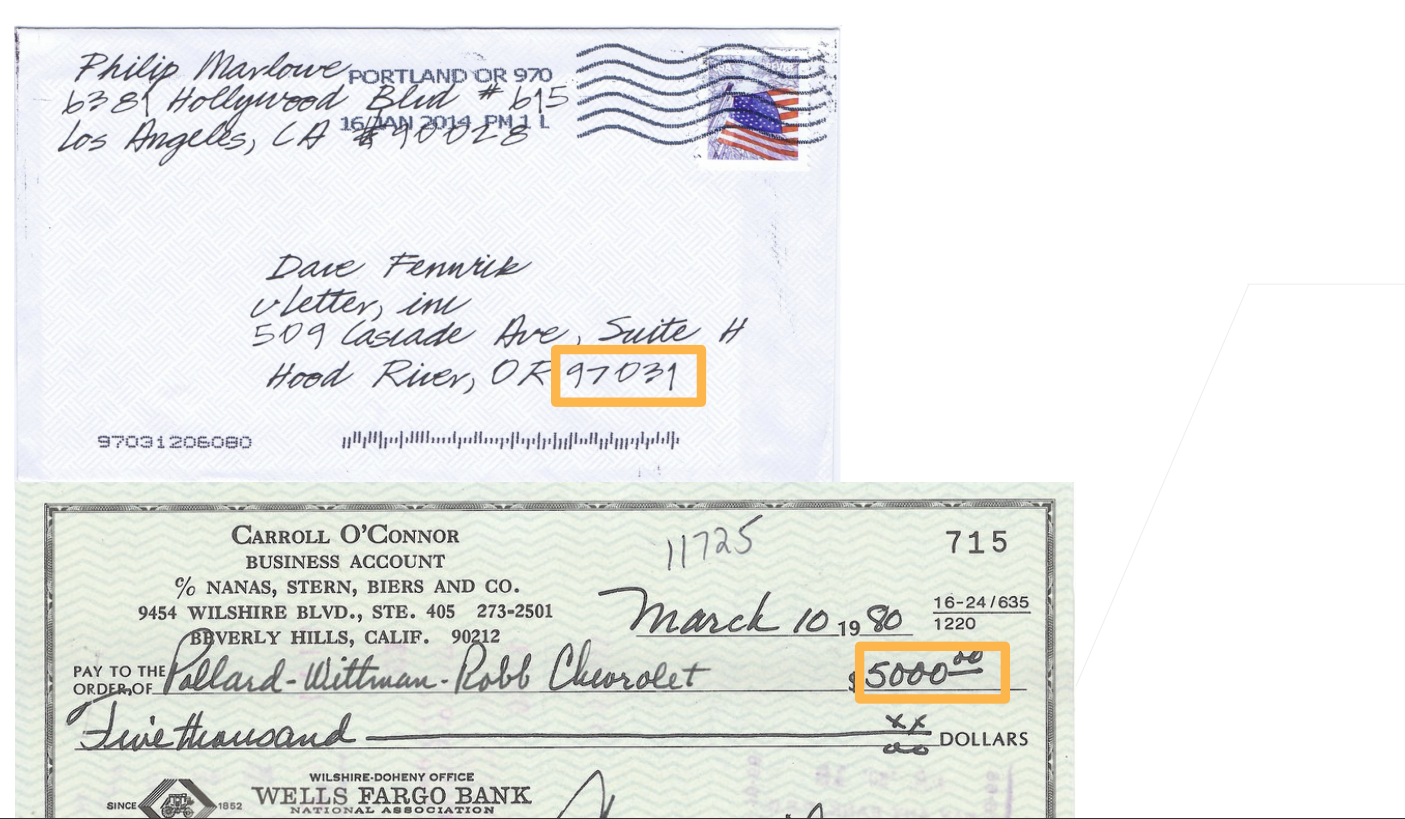 Philip Marlowe
PORTLAND OR 970
6381 Hollywood Blvd # 615
16 JAN 2014 PM 1 L
Los Angeles, CA 90028
Dave Fennwick
vLetter, inc
509 Cascade Ave, Suite H
Hood River, OR 97031
97031206080
CARROLL O'CONNOR
BUSINESS ACCOUNT
% NANAS, STERN, BIERS AND CO.
9454 WILSHIRE BLVD., STE. 405 273-2501
BEVERLY HILLS, CALIF. 90212
11725
715
March 10 19 80
16-24/635
1220
PAY TO THE ORDER OF Pollard-Wittman-Robb Chevrolet $ 5000 00
Five thousand xx/00 DOLLARS
WILSHIRE-DOHENY OFFICE
SINCE 1852 WELLS FARGO BANK
NATIONAL ASSOCIATION